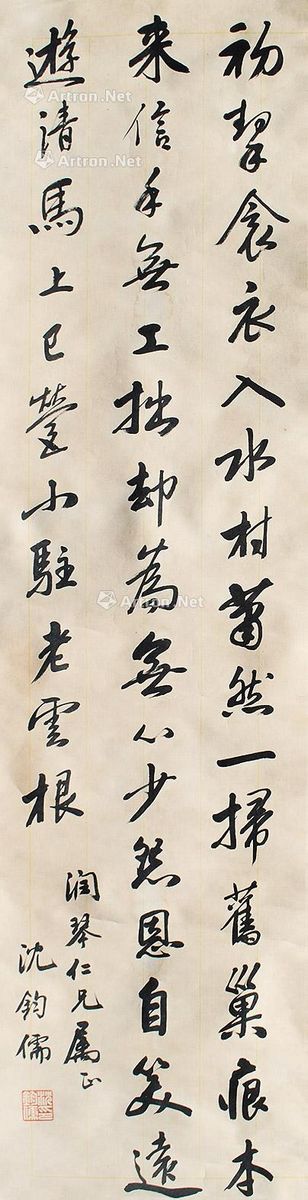 初挈衾衣入水村蕭然一掃舊巢痕本
来信手無工拙却為無心少怨恩自笑遠
遊清馬上已營小駐老雲根
润琴仁兄属正
沈鈞儒
Artron.Net
Artron.Net
Artron.Net
Artron.Net